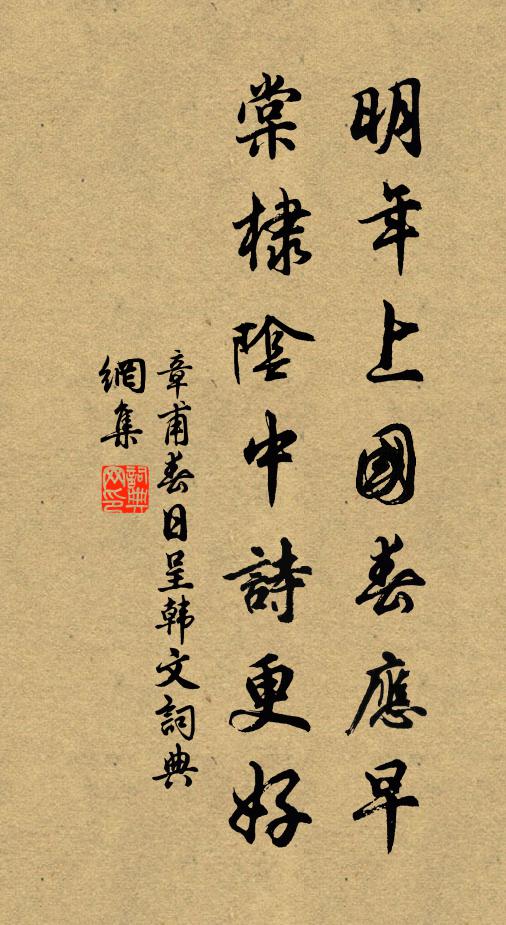 明年上國春應早
棠棣陰中詩更好
章甫春日呈韩文詞典
網集
詞典网印